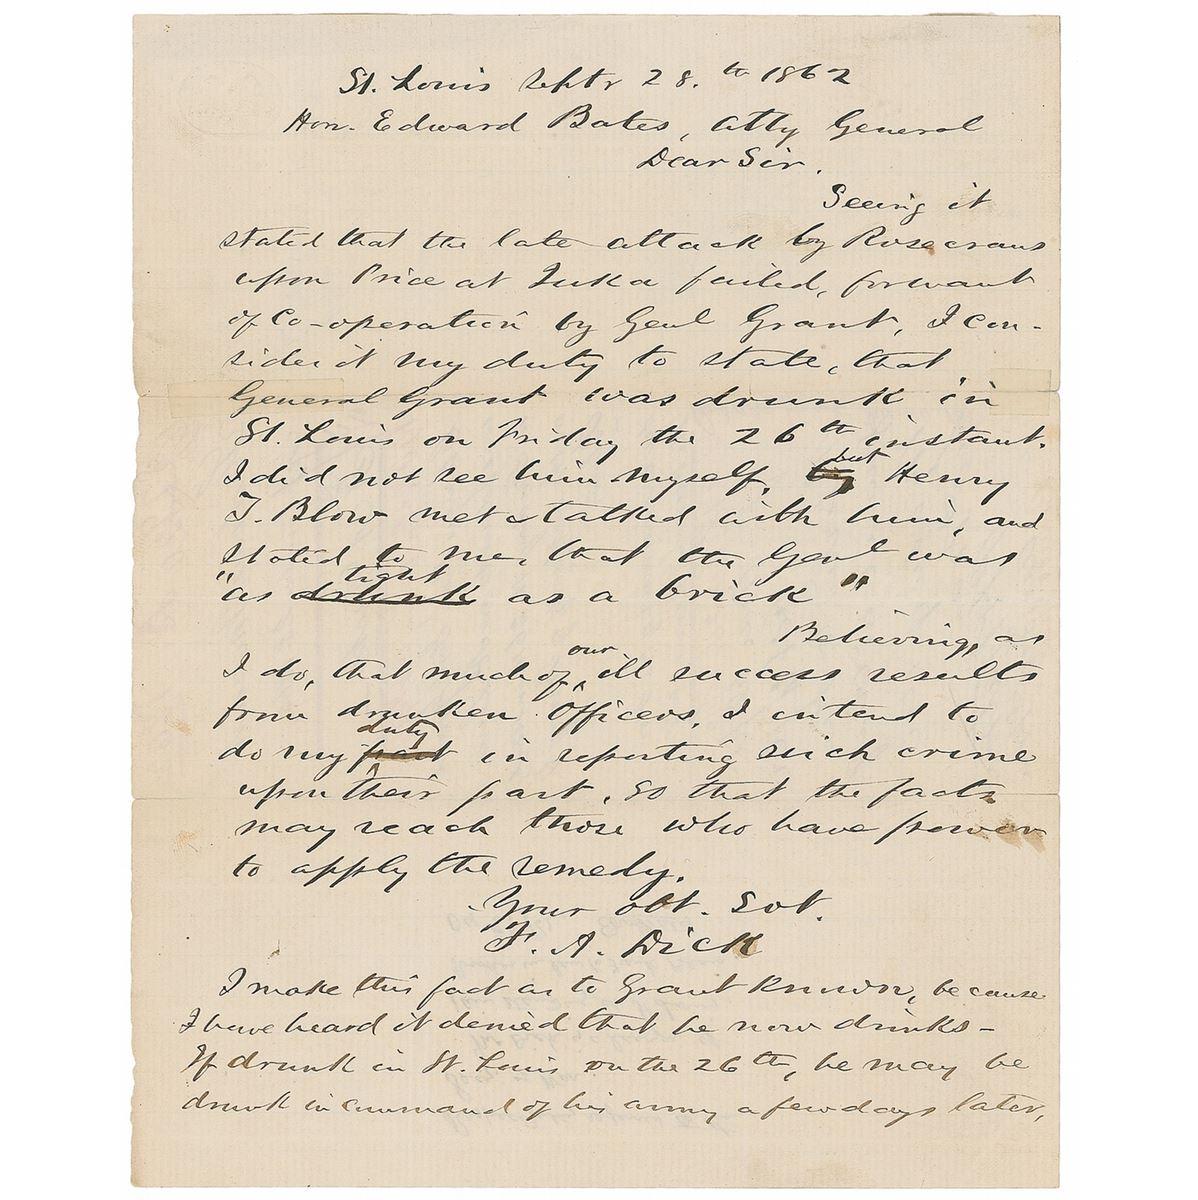 St. Louis Septr 28.th 1862
Hon. Edward Bates, Atty General
Dear Sir.
Seeing it
stated that the late attack by Rosecrans
upon Price at Iuka failed, for want
of Co-operation by Genl Grant, I con-
sider it my duty to state, that
General Grant was drunk in
St. Louis on Friday the 26th instant.
I did not see him myself, but Henry
T. Blow met & talked with him, and
stated to me, that the Genl was
"as drunk tight as a brick"
Believing, as
I do, that much of our ill success results
from drunken Officers, I intend to
do my part duty in reporting such crime
upon their part, so that the facts
may reach those who have power
to apply the remedy.
Your obt. Svt.
F. A. Dick
I make this fact as to Grant known, because
I have heard it denied that he now drinks -
If drunk in St. Louis on the 26th, he may be
drunk in command of his army a few days later,